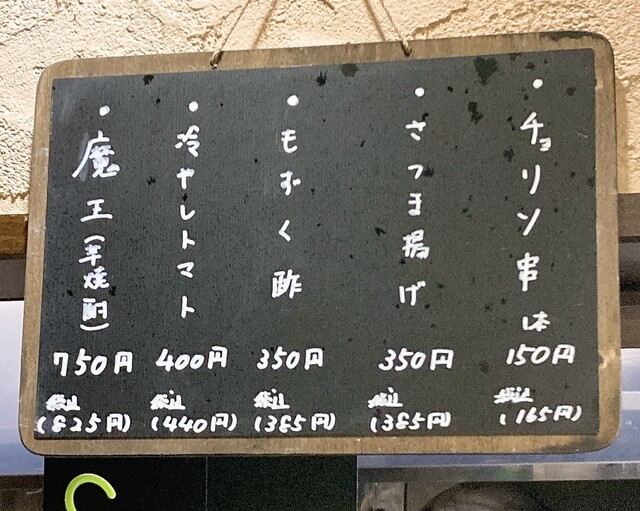 ・チョリソ串 1本
150円
税込
(165円)
・さつま揚げ
350円
税込
(385円)
・もずく酢
350円
税込
(385円)
・冷やしトマト
400円
税込
(440円)
・魔王(芋焼酎)
750円
税込
(825円)